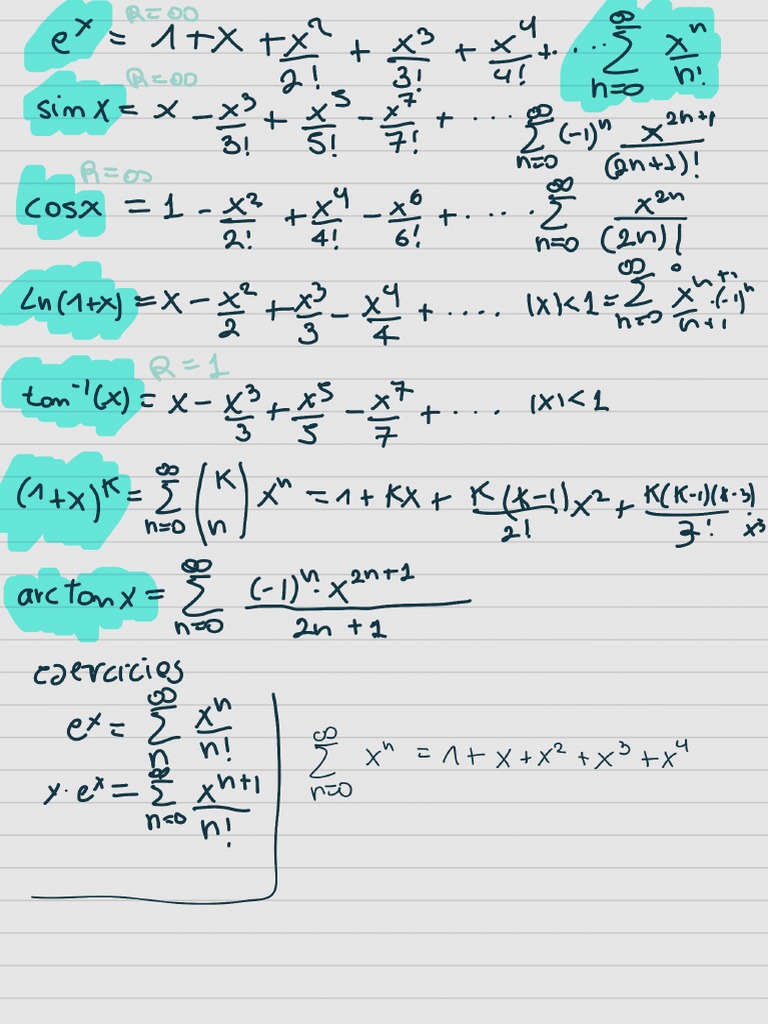 R=∞
e^x = 1+x + x²/2! + x³/3! + x⁴/4! + ... ∑_{n=0}^{∞} x^n/n!
R=∞
sinx = x - x³/3! + x⁵/5! - x⁷/7! + ... ∑_{n=0}^{∞} (-1)^n x^{2n+1}/(2n+1)!
R=∞
cosx = 1 - x²/2! + x⁴/4! - x⁶/6! + .... ∑_{n=0}^{∞} x^{2n}/(2n)!
Ln(1+x) = x - x²/2 + x³/3 - x⁴/4 + .... |x|<1 = ∑_{n=0}^{∞} x^{n+1}/n+1 ·(-1)^n
R=1
tan⁻¹(x) = x - x³/3 + x⁵/5 - x⁷/7 + ... |x|<1
(1+x)^K = ∑_{n=0}^{∞} (K n) x^n = 1 + Kx + K(K-1)/2! x² + K(K-1)(K-3)/3! · x³
arctanx = ∑_{n=0}^{∞} (-1)^n · x^{2n+1}/2n+1
exercicios
e^x = ∑_{n}^{∞} x^n/n!
x·e^x = ∑_{n=0}^{∞} x^{n+1}/n!
∑_{n=0}^{∞} x^n = 1+x+x²+x³+x⁴